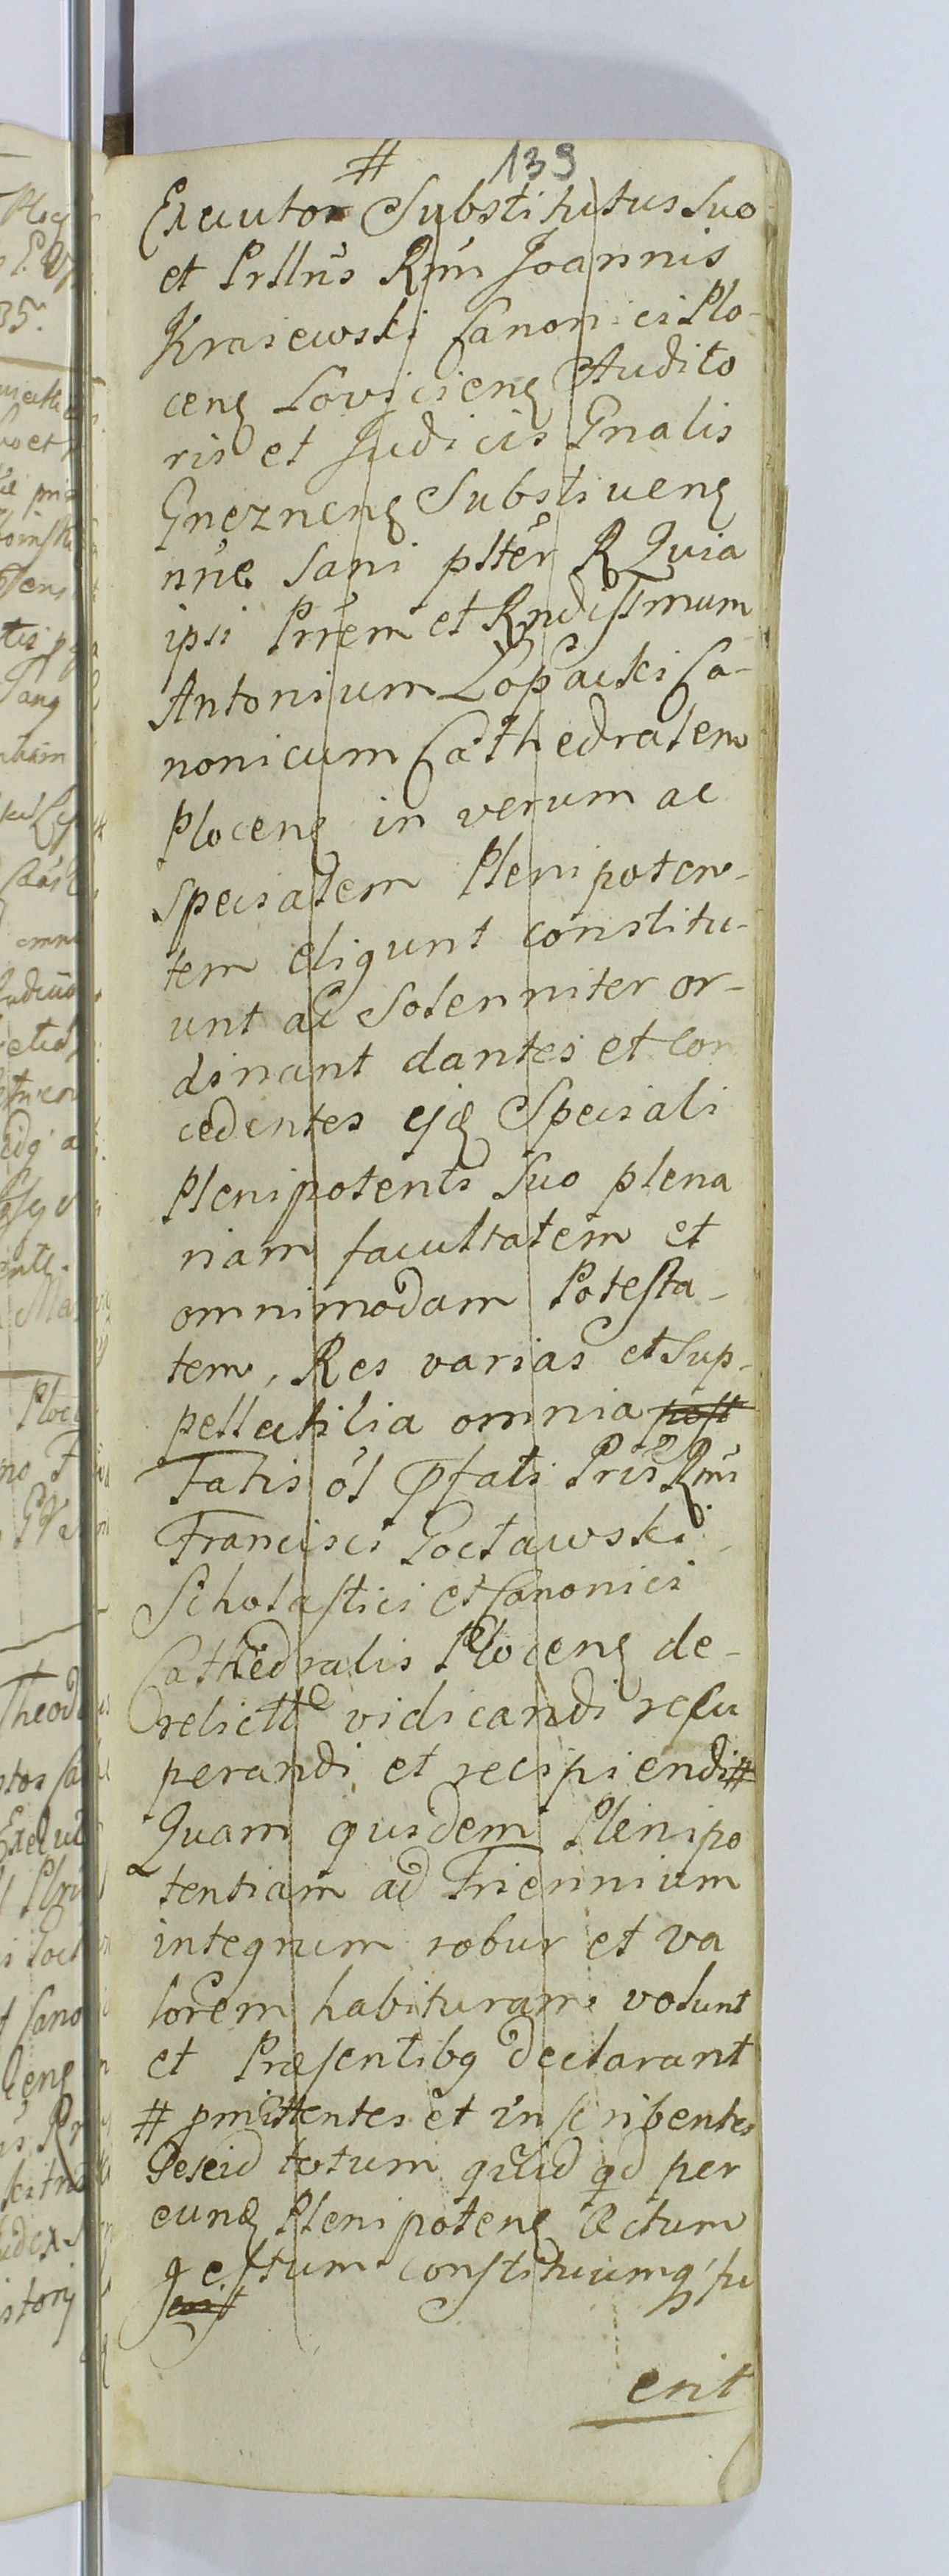 # 139
Executor Substitutus Suo
et Prllus Rmi Joannis
Krajewski Canonici Plo-
ceng Loviciens Audito
ris et Judicis Gnalis
Gneznens Substi
sani R Quia
ipsi Prrem et Rndissmum
Antonium Łopacki Ca-
nonicum Cathedralem
Plocens in verum ac
specialem Plenipoten-
tem eligunt constitu-
unt ac Solenniter or-
dinant dantes et con
cedentes ejq Speciali
Plenipotenti Suo plena
riam facultatem et
omnimodam Potesta-
tem, Res varias et Sup-
pellectilia omnia post
Fatis ol pfati Pris Rmi
Francisci Goctawski
Scholastici et Canonici
Cathedralis Plocens de-
relicta vidicandi recu
perandi et recipiendi #
Quam quidem Plenipo
tentiam ad Triennium
integrum robur et va
lorem habituram volunt
et Præsentibq declarant
# pmittentes et inscribentes
Se id totum quid qd per
eunq Plenipotens actum
gestum constituumq fu
erit